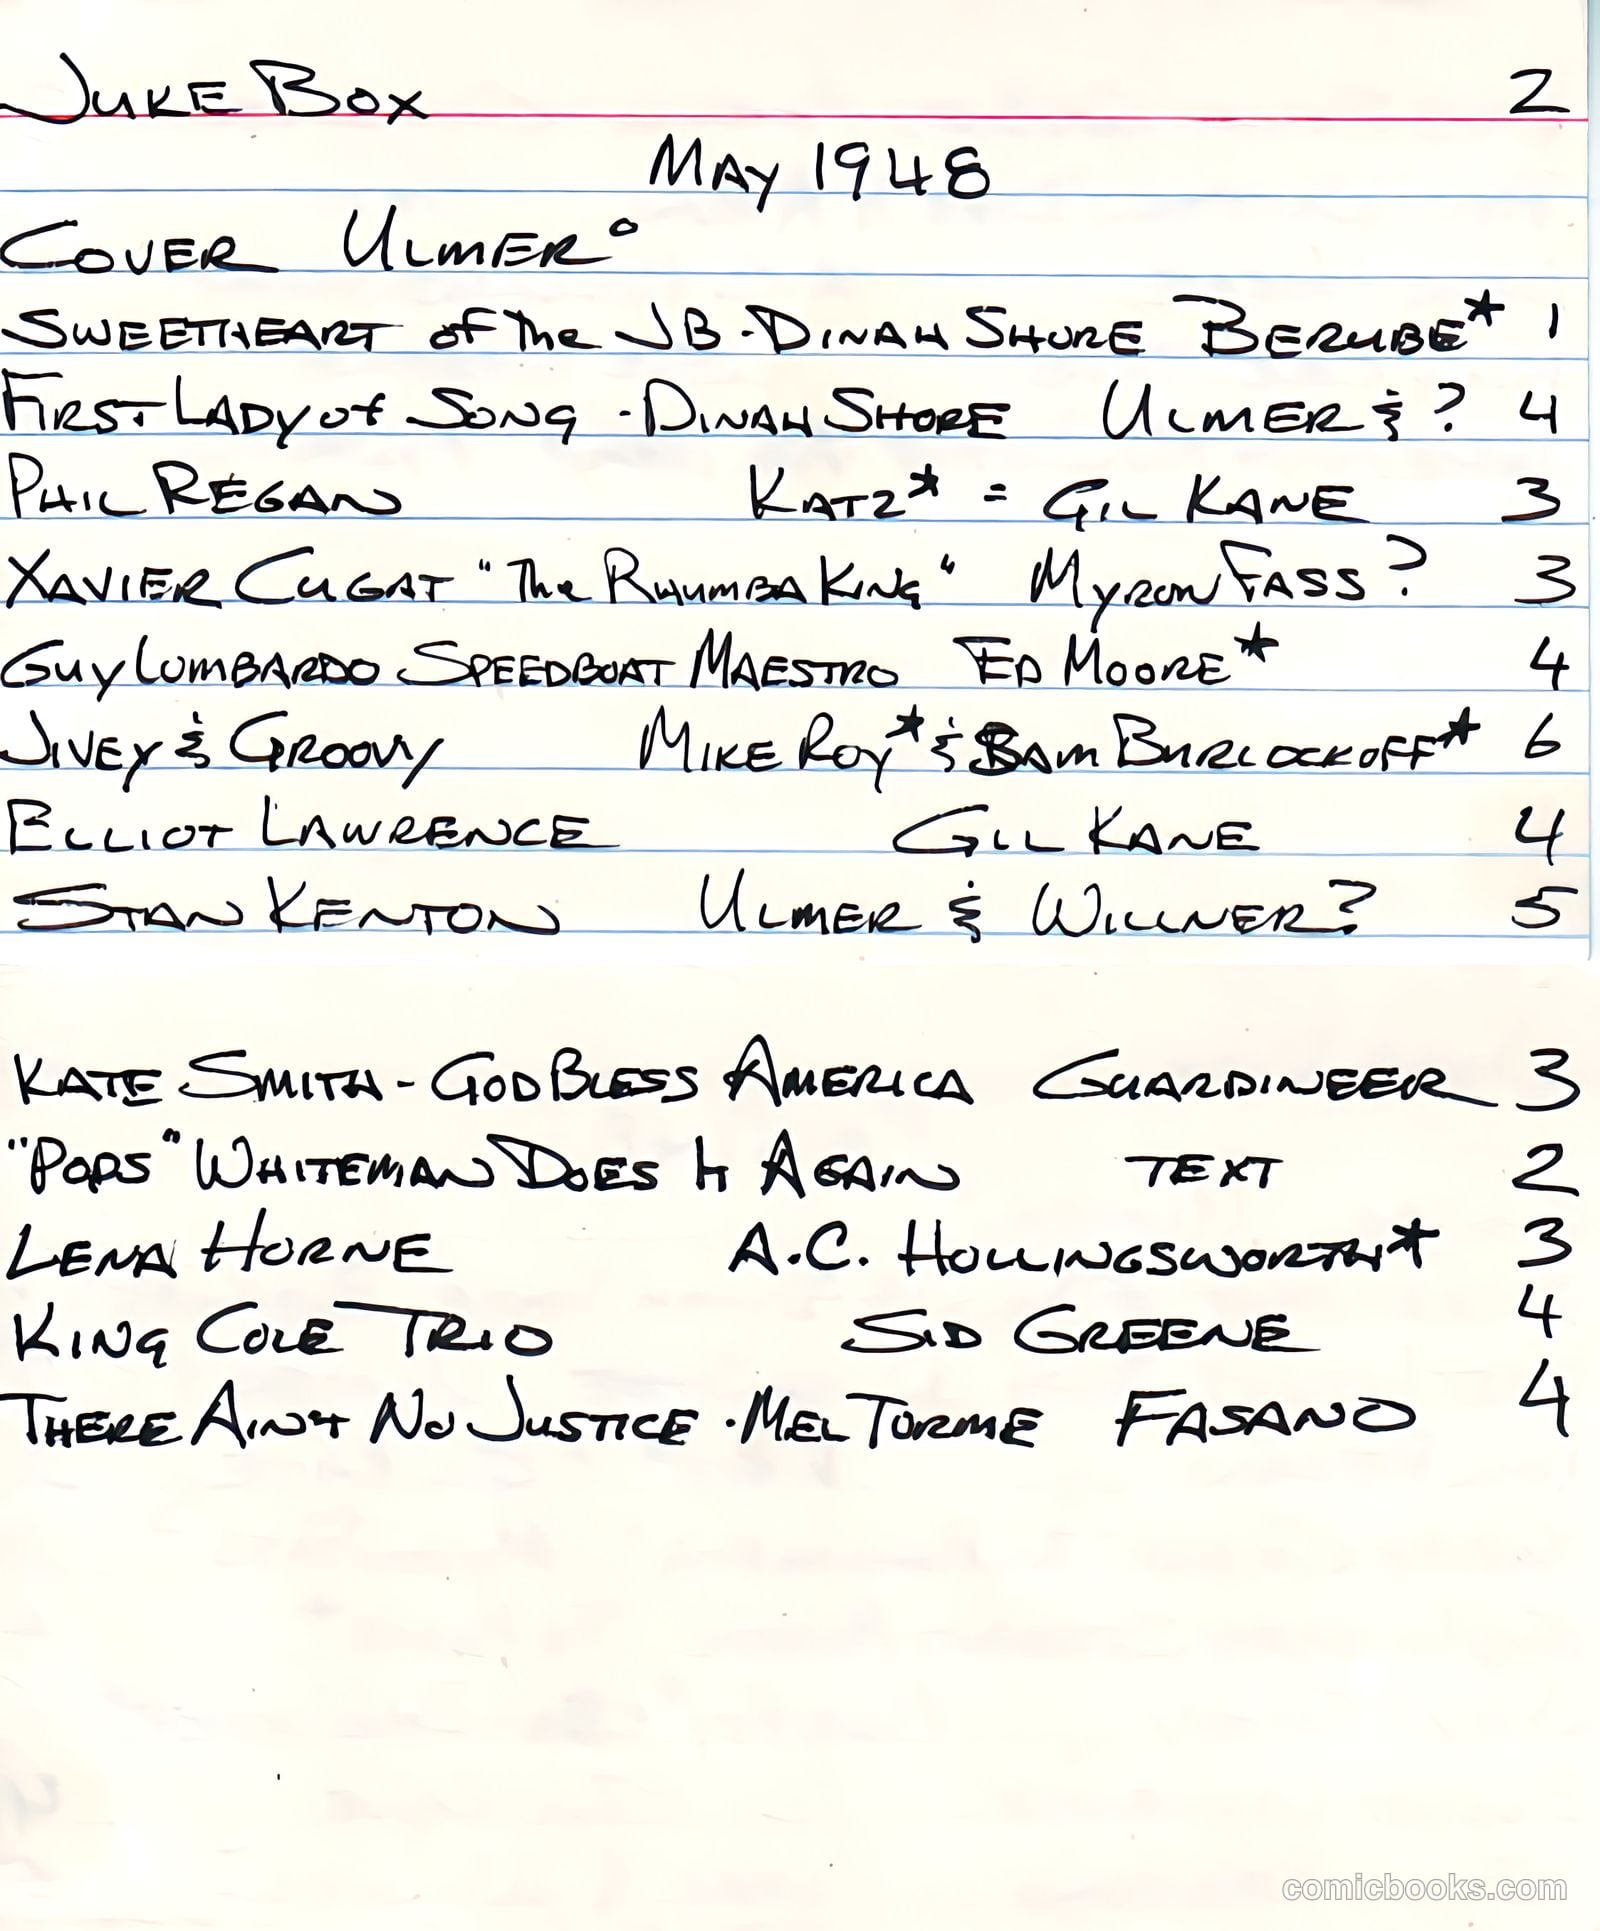 Juke Box 2
May 1948
Cover Ulmer°
Sweetheart of the JB - Dinah Shore Berube* 1
First Lady of Song - Dinah Shore Ulmer & ? 4
Phil Regan Katz* = Gil Kane 3
Xavier Cugat "The Rhumba King" Myron Fass? 3
Guy Lombardo Speedboat Maestro Ed Moore* 4
Jivey & Groovy Mike Roy* & Sam Burlockoff* 6
Elliot Lawrence Gil Kane 4
Stan Kenton Ulmer & Willner? 5
Kate Smith - God Bless America Guardineer 3
"Pops" Whiteman Does It Again text 2
Lena Horne A.C. Hollingsworth* 3
King Cole Trio Sid Greene 4
There Ain't No Justice - Mel Torme Fasano 4
comicbooks.com